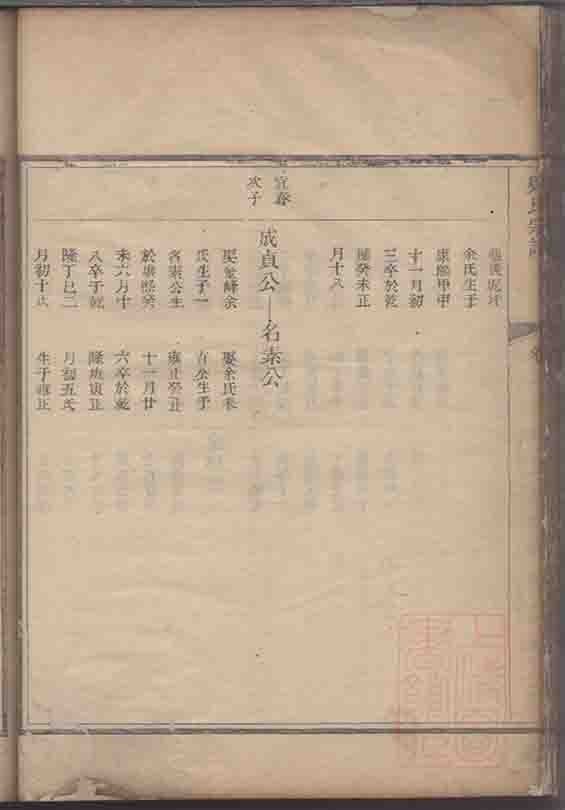 宜春
次子
余氏生于
康熙甲申
十一月初
三卒於乾
隆癸未正
月十八
成貞公—名素公
娶金峰余
氏生子一
名素公生
於康熙癸
未六月十
八卒于乾
隆丁巳二
月初十
娶余氏
貞公生于
雍正癸丑
十一月廿
六卒於乾
隆庚寅正
月初五氏
生于雍正